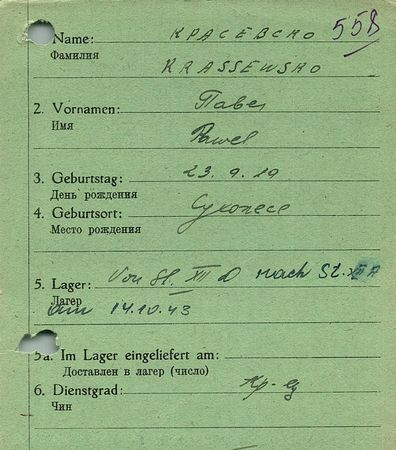 558
Name: КРАСЕВСКО
Фамилия
KRASSEWSKO
2. Vornamen: Павел
Имя
Pawel
3. Geburtstag: 23. 9. 19
День рождения
4. Geburtsort:
Место рождения
5. Lager: Von St. XII D nach St. XII A
Лагер
am 14.10.43
5a. Im Lager eingeliefert am:
Доставлен в лагер (число)
6. Dienstgrad: Кр-ец
Чин